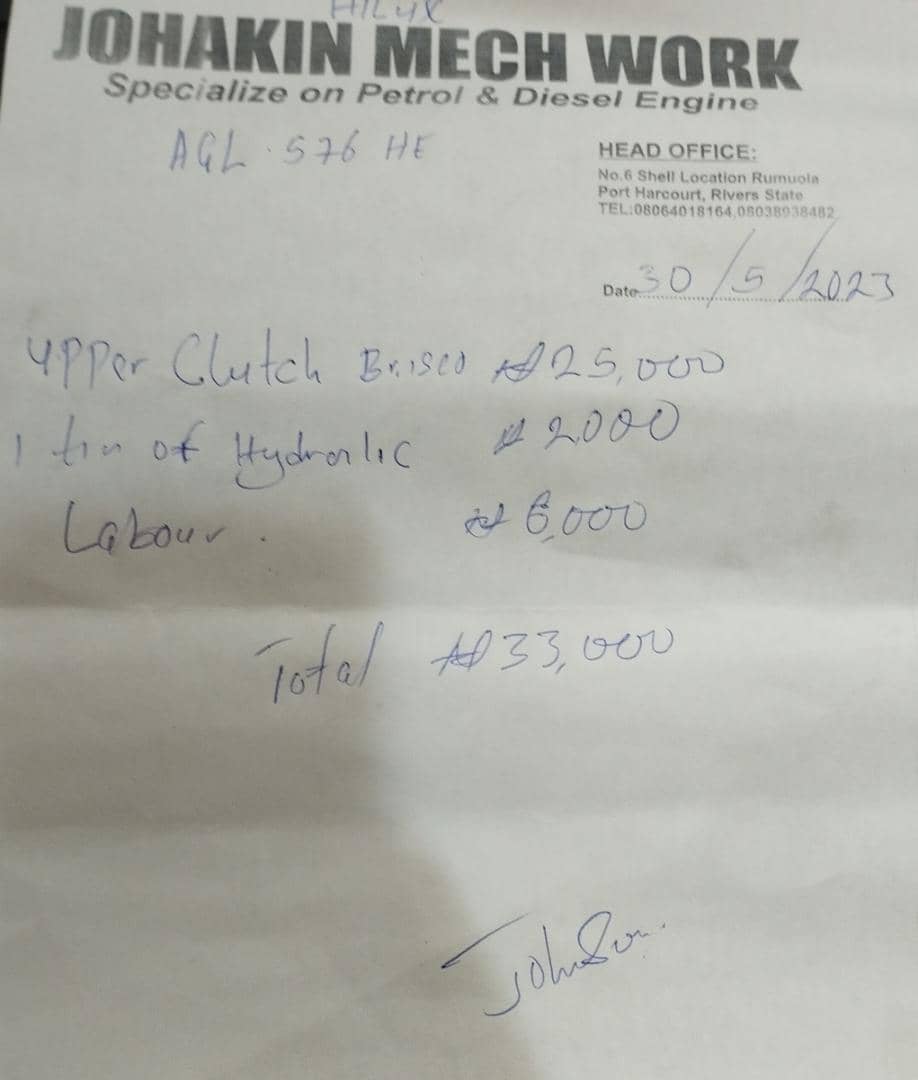 HILUX
JOHAKIN MECH WORK
Specialize on Petrol & Diesel Engine
AGL. 576 HE
HEAD OFFICE:
No.6 Shell Location Rumuola
Port Harcourt, Rivers State
TEL:08064018164,08038938482
Date 30/5/2023
Upper Clutch ₦25,000
1 tin of Hydrolic ₦2000
Labour. ₦6,000
Total ₦33,000
Johnson.